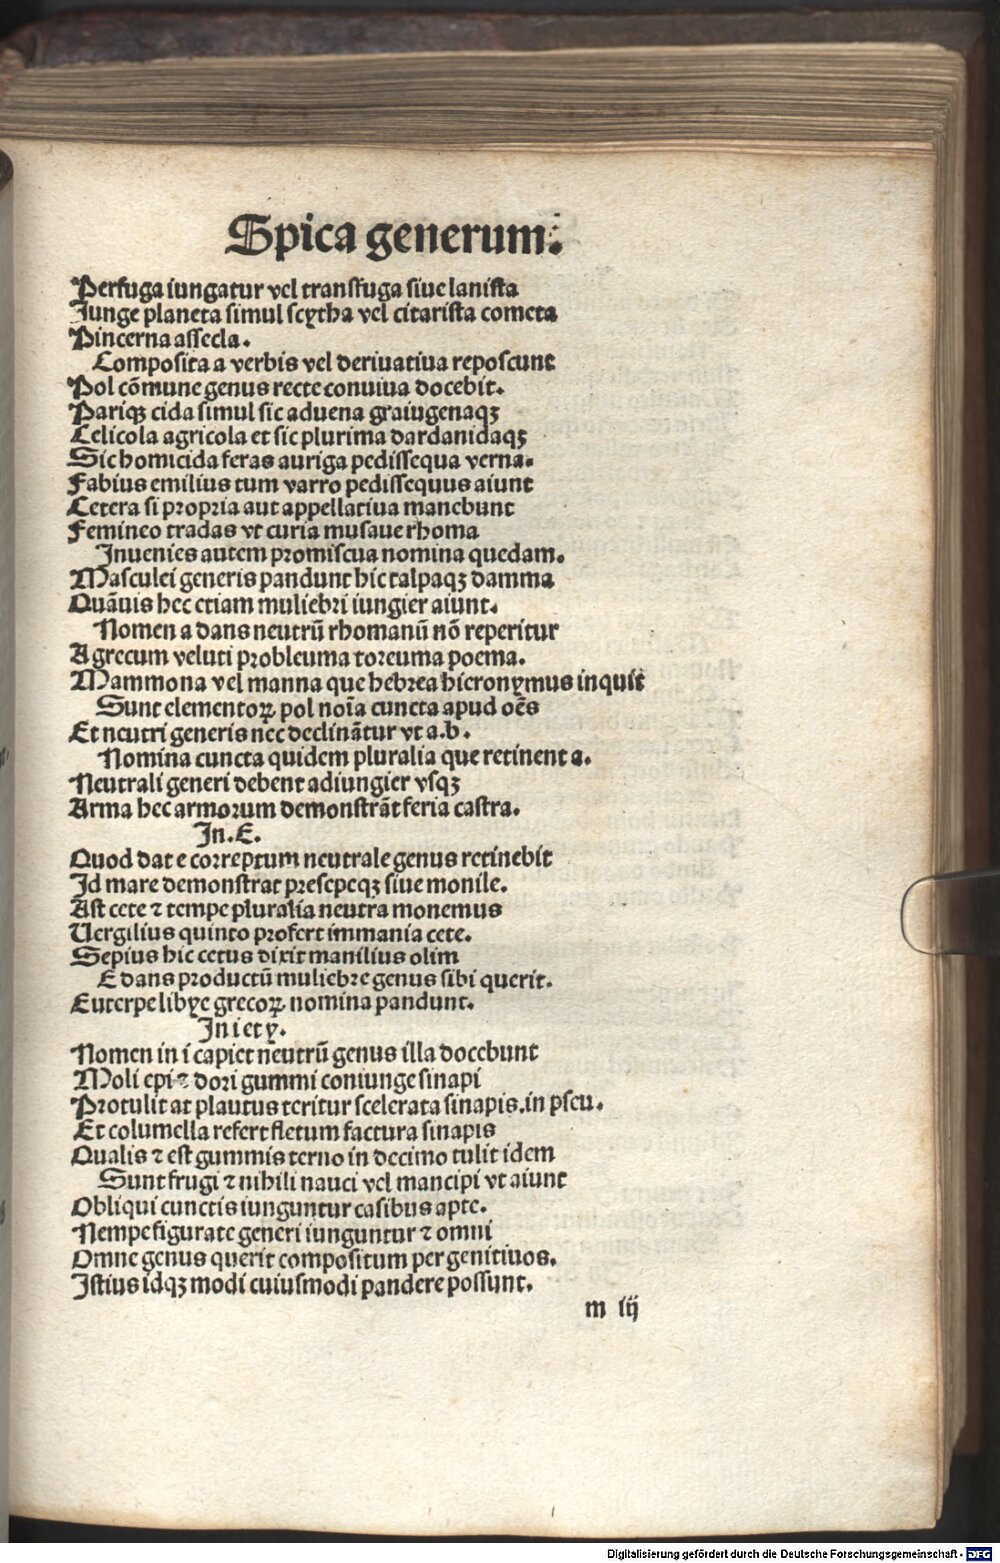 Spica generum:
Perfuga iungatur vel transfuga siue lanista
Junge planeta simul scytha vel citarista cometa
Pincerna assecla.
Composita a verbis vel deriuatiua reposcunt
Pol cõmune genus recte conuiua docebit.
Pariqꝫ cida simul sic aduena graiugenaqꝫ
Celicola agricola et sic plurima dardanidaqꝫ
Sic homicida feras auriga pedissequa verna.
Fabius emilius tum varro pedissequus aiunt
Cetera si propria aut appellatiua manebunt
Femineo tradas vt curia musaue rhoma
Inuenies autem promiscua nomina quedam.
Masculei generis pandunt hic talpaqꝫ damma
Quãuis hec etiam muliebri iungier aiunt.
Nomen a dans neutrũ rhomanũ nõ reperitur
A grecum veluti probleuma toreuma poema.
Mammona vel manna que hebrea hieronymus inquit
Sunt elementoꝝ pol noĩa cuncta apud oẽs
Et neutri generis nec declinãtur vt a.b.
Nomina cuncta quidem pluralia que retinent a.
Neutrali generi debent adiungier vsqꝫ
Arma hec armorum demonstrãt feria castra.
In.E.
Quod dat e correptum neutrale genus retinebit
Id mare demonstrat presepeqꝫ siue monile.
Ast cete ⁊ tempe pluralia neutra monemus
Uergilius quinto profert immania cete.
Sepius hic cetus dixit manilius olim
E dans productũ muliebre genus sibi querit.
Euterpe libye grecoꝝ nomina pandunt.
In i et y.
Nomen in i capiet neutrũ genus illa docebunt
Moli epi ⁊ dori gummi coniunge sinapi
Protulit at plautus teritur scelerata sinapis.in pseu.
Et columella refert fletum factura sinapis
Qualis ⁊ est gummis terno in decimo tulit idem
Sunt frugi ⁊ nihili nauci vel mancipi vt aiunt
Obliqui cunctis iunguntur casibus apte.
Nempe figurate generi iunguntur ⁊ omni
Omne genus querit compositum per genitiuos.
Istius idqꝫ modi cuiusmodi pandere possunt.
m iij
Digitalisierung gefördert durch die Deutsche Forschungsgemeinschaft - DFG